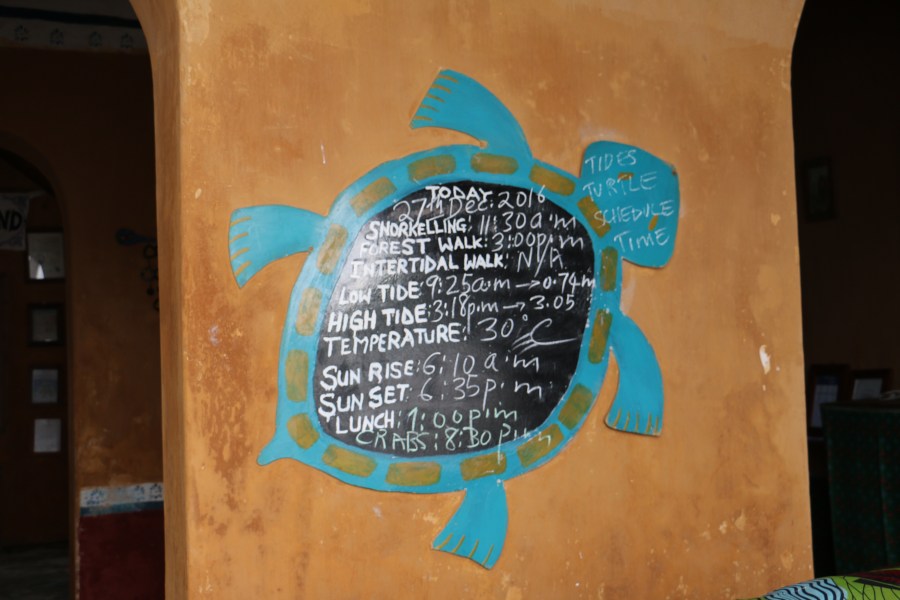 TIDES
TURTLE
SCHEDULE
TIME
TODAY
27TH Dec. 2016
SNORKELLING: 11:30 a.m
FOREST WALK: 3:00 p.m
INTERTIDAL WALK: N/A
LOW TIDE: 9:25 a.m → 0.74 m
HIGH TIDE: 3:18 p.m → 3.05
TEMPERATURE: 30°C
SUN RISE: 6:10 a.m
SUN SET: 6:35 p.m
LUNCH: 1:00 p.m
CRABS: 8:30 p.m
ND